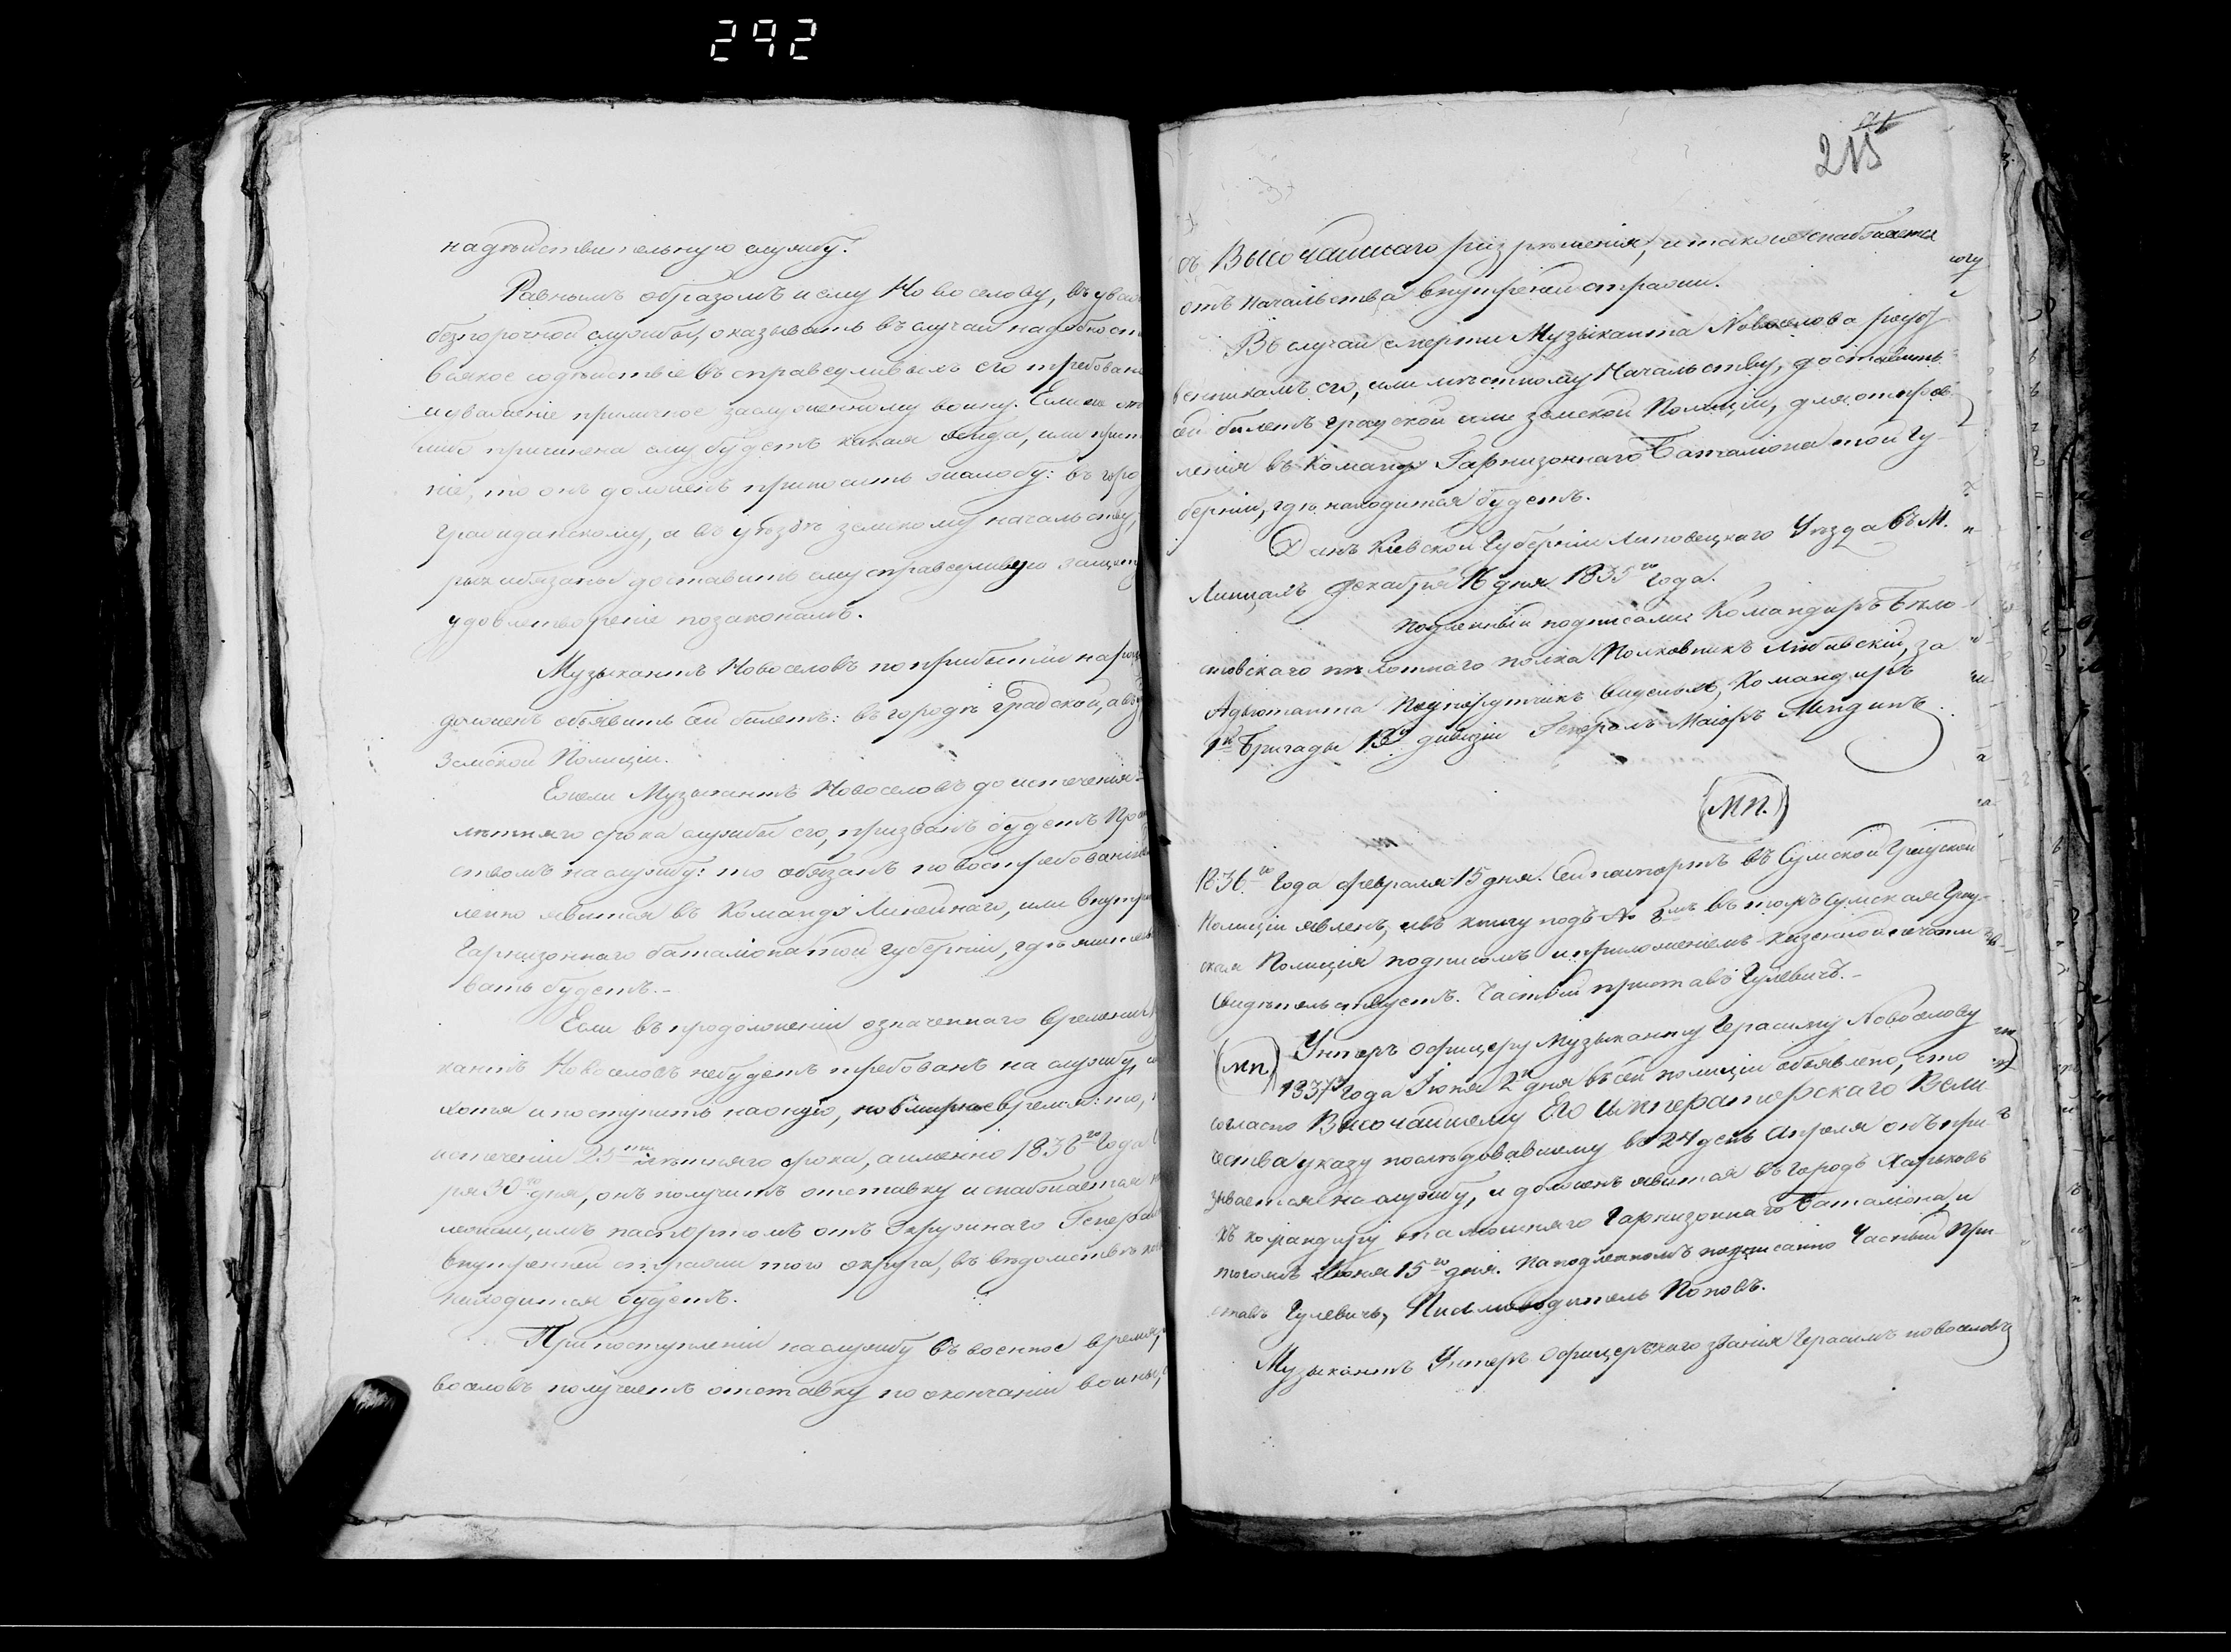 292
215
на дѣйствительную службу.
Равнымъ образомъ и ему Новоселову, въ уваж
безпорочной службы, оказывать въ случаи надобност
всякое содѣйствіе въ справедливымъ его требован
и уваженіе приличное заслуженному воину. Если же от
причинена ему будетъ какая обида, или прит
ніе, то онъ долженъ приносить жалобу: въ горо
гражданскому, а въ уѣздѣ земскому начальству,
рыя обязаны доставить ему справедливую защит
удовлетвореніе по законамъ.
Музыкантъ Новоселовъ по прибытіи на род
долженъ объявить сей билетъ: въ городѣ Градской, а въ у
Земской Полиціи.
Ежели Музыкантъ Новоселовъ до истеченія
лѣтняго срока службы его, призванъ будетъ Пра
ствомъ на службу: то обязанъ по востребованію
ленно явится въ Команду Линейнаго, или Внутр
Гарнизоннаго баталіона той губерніи, гдѣ жител
вать будетъ.-
Если въ продолженіи означеннаго времени
кантъ Новоселовъ небудетъ требованъ на службу, и
хотя и поступитъ на оную, но в мирное время: то,
истеченіи 25ти лѣтняго срока, а именно 1836го Года
ря 30го дня, онъ получитъ отставку и снабжается
паспортомъ отъ Окружнаго Генера
Внутренней стражи того округа, въ вѣдомствѣ ко
находится будетъ.
При поступленіи на службу въ военное время,
воселовъ получаетъ отставку по окончаніи войны,
съ Высочайшаго разрѣшенія, и также снабжается
отъ начальства внутреней стражи.
Въ случаи смерти Музыканта Новоселова родст
венникамъ его, или мѣстному Начальству, доставить
сей билетъ градской или земской Полиціи, для отправ
ленія въ Команду Гарнизоннаго Баталіона той Гу
берніи, гдѣ находится будетъ.
Данъ Кіевской Губерніи Липовецкаго Уѣзда въ М.
декабря 16 дня 1835го года.
Подлинный подписали: Командиръ Бѣло
стокскаго пѣхотнаго полка Полковникъ Любавскій, за
Адъютанта Подпорутчикъ Командиръ
1й Бригады 13й дивизіи Генералъ Маіоръ
(МП.)
1836го Года февраля 15 дня. Сей паспортъ въ Сумской Градской
Полиціи явленъ, и въ книгу подъ № въ томъ Сумская Град-
ская Полиція подписомъ и приложеніемъ казенной печати
свидѣтельствуетъ. Частный приставъ Гулевичъ.-
(МП) Унтеръ офицеру Музыканту Герасиму Новоселову
1837го года Іюня 2го дня въ сей полиціи объявлено, что
согласно Высочайшему Его Императорскаго Вели
чества указу послѣдовавшему въ 24 день Апреля онъ при
зывается на службу, и долженъ явится въ городъ Харьковъ
къ командиру тамошняго Гарнизоннаго Баталіона, и
Іюня 15го дня. На подлинномъ подписанно Частный При
ставъ Гулевичь, Письмоводитель Поповъ.
Музыкантъ Унтеръ Офицерскаго званія Герасимъ Новоселовъ